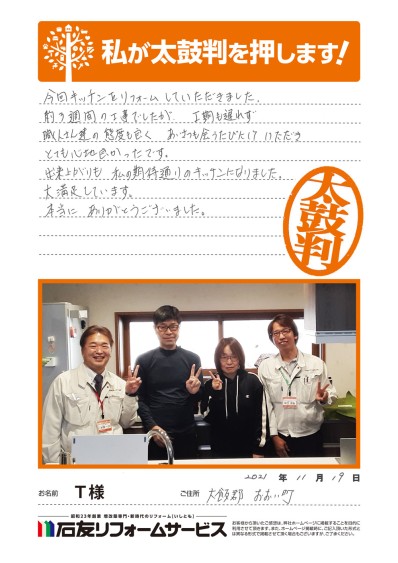 私が太鼓判を押します!
今回キッチンをリフォームしていただきました。
約3週間の工事でしたが、工期も遅れず
職人さん達の態度も良く あいさつも会うたびにして いただき
とても心地良かったです。
出来上がりも 私の期待通りのキッチンになりました。
大満足しています。
本当に ありがとうございました。
太鼓判
2021 年 11 月 19 日
お名前 T様 ご住所 大飯郡 おおい町
昭和23年創業 増改築専門・新時代のリフォーム(いしとも)
石友リフォームサービス
お客様から頂いたご感想は、弊社ホームページに掲載することを目的に
利用させて頂きます。また、ホームページ掲載時に、ご記入頂いた形式と
は異なる形式で掲載させて頂く場合もございますが、ご了承ください。